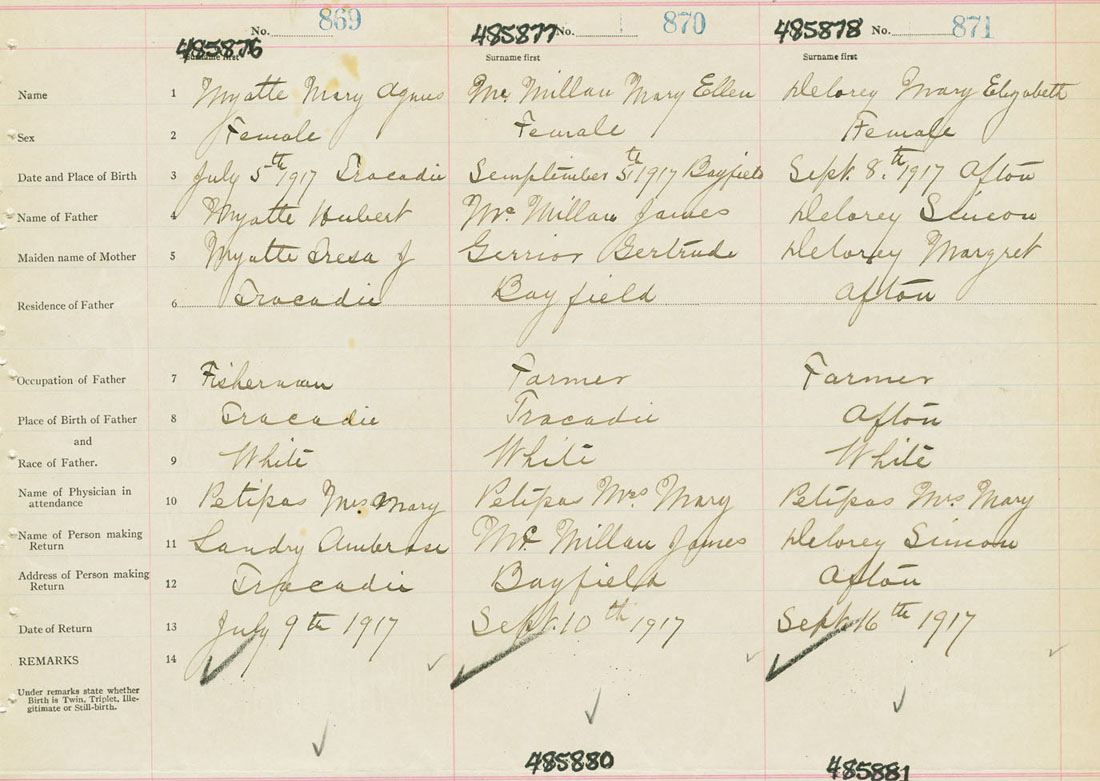 No. 869 No. 870 No. 871
485876 485877 485878
Surname first Surname first Surname first
Name 1 Myatte Mary Agnus Mc Millan Mary Ellen Delorey Mary Elizabeth
Sex 2 Female Female Female
Date and Place of Birth 3 July 5th 1917 Tracadie Semptember 5th 1917 Bayfield Sept. 8th 1917 Afton
Name of Father 4 Myatte Hubert Mc Millan James Delorey Simeon
Maiden name of Mother 5 Myatte Tresa J Gerrior Gertrude Delorey Margret
Residence of Father 6 Tracadie Bayfield Afton
Occupation of Father 7 Fisherman Farmer Farmer
Place of Birth of Father 8 Tracadie Tracadie Afton
and
Race of Father. 9 White White White
Name of Physician in
attendance 10 Petipas Mrs Mary Petipas Mrs Mary Petipas Mrs Mary
Name of Person making
Return 11 Landry Ambrose Mc Millan James Delorey Simeon
Address of Person making
Return 12 Tracadie Bayfield Afton
Date of Return 13 July 9th 1917 Sept. 10th 1917 Sept. 16th 1917
REMARKS 14
Under remarks state whether
Birth is Twin, Triplet, Ille-
gitimate or Still-birth.
485880 485881